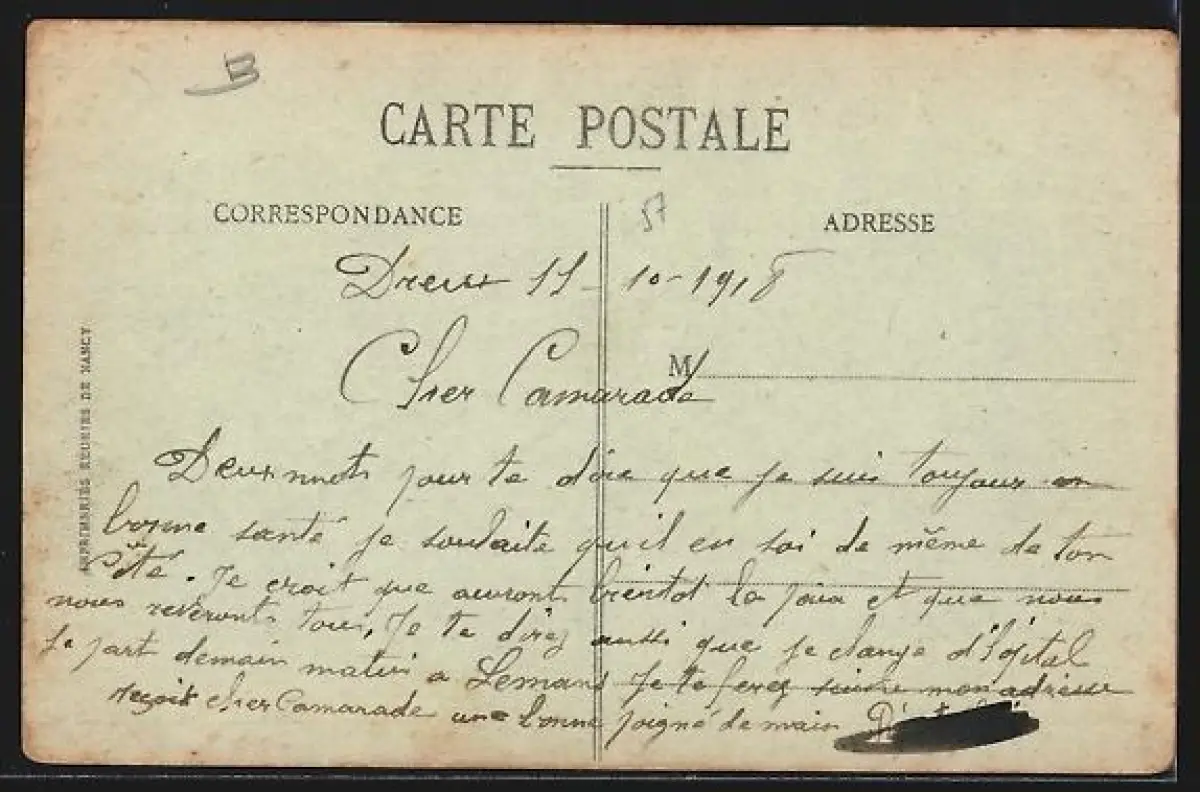 B
CARTE POSTALE
CORRESPONDANCE
57
ADRESSE
Dreux 11-10-1918
M
Cher Camarade
Deux mots pour te dire que je suis toujours en
bonne santé je souhaite qu'il en soi de même de ton
côté. Je croit que auront bientot la paix et que nous
nous reverronts tous, Je te direz aussi que je change d'hôpital
Je part demain matin a Lemans Je te ferez suivre mon adresse
reçoit cher Camarade une bonne poigné de main
IMPRIMERIES REUNIES DE NANCY